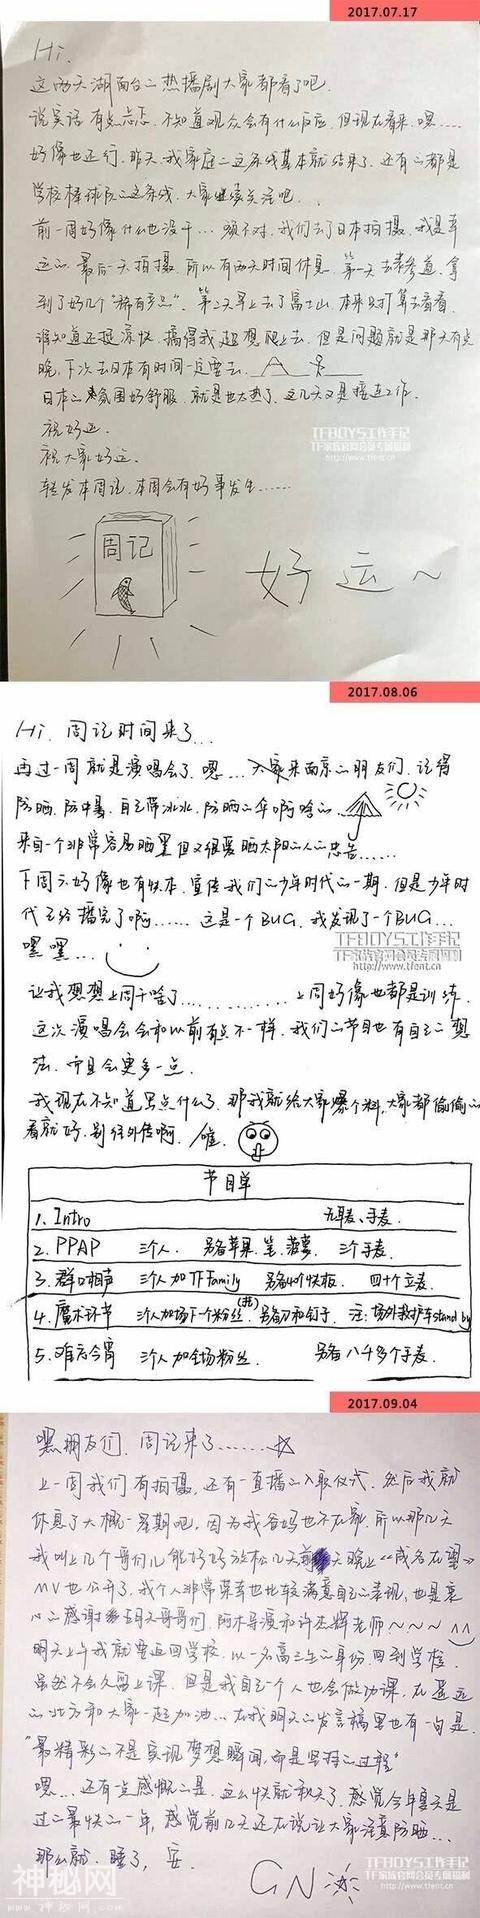 2017.07.17
Hi.
这两天湖南台的热播剧大家都看了吧.
说实话 有点忐忑. 不知道观众会有什么反应. 但现在看来. 嗯......
好像也还行. 昨天. 我家庭的这条线基本就结束了. 还有的都是
学校棒球队的这条线. 大家继续关注吧..
前一周好像什么也没干... 额不对. 我们去了日本拍摄. 我是幸
运的. 最后一天拍摄. 所以有两天时间休息. 第一天去表参道. 拿
到了好几个“稀有产品”. 第二天早上去了富士山. 本来只打算去看看.
谁知道还挺凉快. 搞得我超想爬上去. 但是问题就是那天有点
晚. 下次去日本有时间一定要去.
日本的氛围好舒服. 就是也太热了. 这几天又是接连工作.
祝好运.
祝大家好运.
转发本周记. 本周会有好事发生......
TFBOYS工作手记
TF家族官网会员专属福利
http://www.tfent.cn
周记
好运~
2017.08.06
Hi. 周记时间来了...
再过一周就是演唱会了. 嗯... 来南京的朋友们. 记得
防晒. 防中暑. 自己带冰水. 防晒的伞啊啥的...
来自一个非常容易晒黑但又很爱晒太阳的人的忠告......
下周六好像也有快本. 宣传我们的少年时代的一期. 但是少年时
代已经播完了啊...... 这是一个BUG. 我发现了一个BUG...
嘿嘿...
TFBOYS工作手记
TF家族官网会员专属福利
http://www.tfent.cn
让我想想上周干啥了............ 上周好像也都是训练.
这次演唱会会和以前有点不一样. 我们的节目也有自己的想
法. 而且会更多一点.
我现在不知道写点什么了. 那我就给大家爆个料. 大家都偷偷的
看就好. 别往外传啊.
节目单
1. Intro 无耳麦、手麦.
2. PPAP 三个人. 另备苹果、笔、菠萝. 三个手麦.
3. 群口相声 三个人加TF Family 另备40个快板. 四十个立麦.
4. 魔术环节 三个人加场下一个粉丝 另备刀和钉子. 注: 场外救护车stand by
5. 难忘今宵 三个人加全场粉丝. 另备八千多个手麦.
2017.09.04
嘿朋友们. 周记来了.......
上一周我们有拍摄. 还有一直播的入取仪式. 然后我就
休息了大概一星期吧. 因为我爸妈也不在家. 所以那几天
我叫上几个哥们儿能好好放松几天. 天晚上《成名在望》
MV也公开了. 我个人非常荣幸也比较满意自己的表现. 也是衷
心的感谢五月天哥哥们. 阿木导演和许杰辉老师~~~
明天上午我就要返回学校. 以一名高三生的身份. 回到学校.
虽然不会久留上课. 但是我自己一个人也会做功课. 在遥远
的北方和大家一起加油... 在我明天的发言稿里也有一句是.
“最精彩的不是实现梦想瞬间, 而是坚持的过程”
嗯... 还有点感慨的是. 这么快就秋天了. 感觉今年夏天是
过的最快的一年, 感觉前几天还在说让大家注意防晒...
那么就. 睡了, 安.
GN
TFBOYS工作手记
TF家族官网会员专属福利
http://www.tfent.cn
神秘网